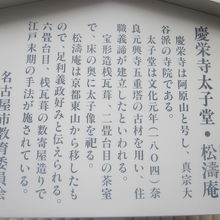 慶栄寺太子堂・松濤庵
慶栄寺は阿原山と号し、真宗大
谷派の寺院である。
太子堂は文化元年(一八〇四)奈
良元興寺五重塔の古材を用い、住
職義諦が建立したといわれる。
宝形造桟瓦葺、二畳台目の茶室
で、床の奥に太子像を祀る。
松濤庵は京都東山から移したも
ので、足利義政好みと伝える。
六畳台目、桟瓦葺の数寄屋造りで
江戸末期の手法が施されている。
名古屋市教育委員会